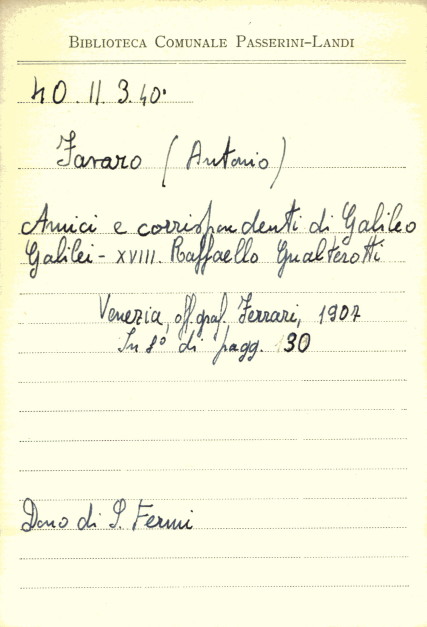 BIBLIOTECA COMUNALE PASSERINI-LANDI
40.II.3.40.
Favaro (Antonio)
Amici e corrispondenti di Galileo
Galilei - XVIII. Raffaello Gualterotti
Venezia, off. graf. Ferrari, 1907
In 8° di pagg. 30
Dono di S. Fermi